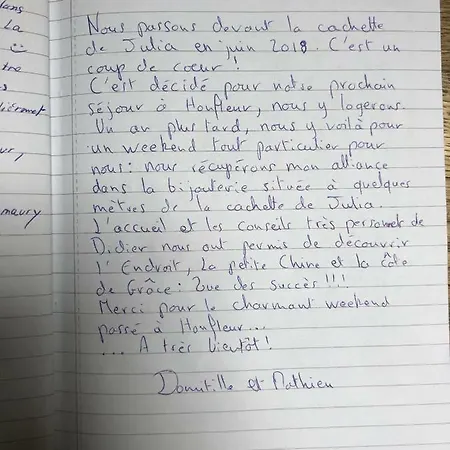 lans
La
tre
s
maury
Nous passons devant la cachette
de Julia en juin 2018. C'est un
coup de coeur !
C'est décidé pour notre prochain
séjour à Honfleur, nous y logerons.
Un an plus tard, nous y voilà pour
un weekend tout particulier pour
nous : nous récupérons mon alliance
dans la bijouterie située à quelques
mètres de la cachette de Julia.
L'accueil et les conseils très personnels de
Didier nous ont permis de découvrir
l'Endroit, La petite Chine et la Côte
de Grâce : Que des succès !!!
Merci pour le charmant weekend
passé à Honfleur...
... A très bientôt !
Domitille et Mathieu